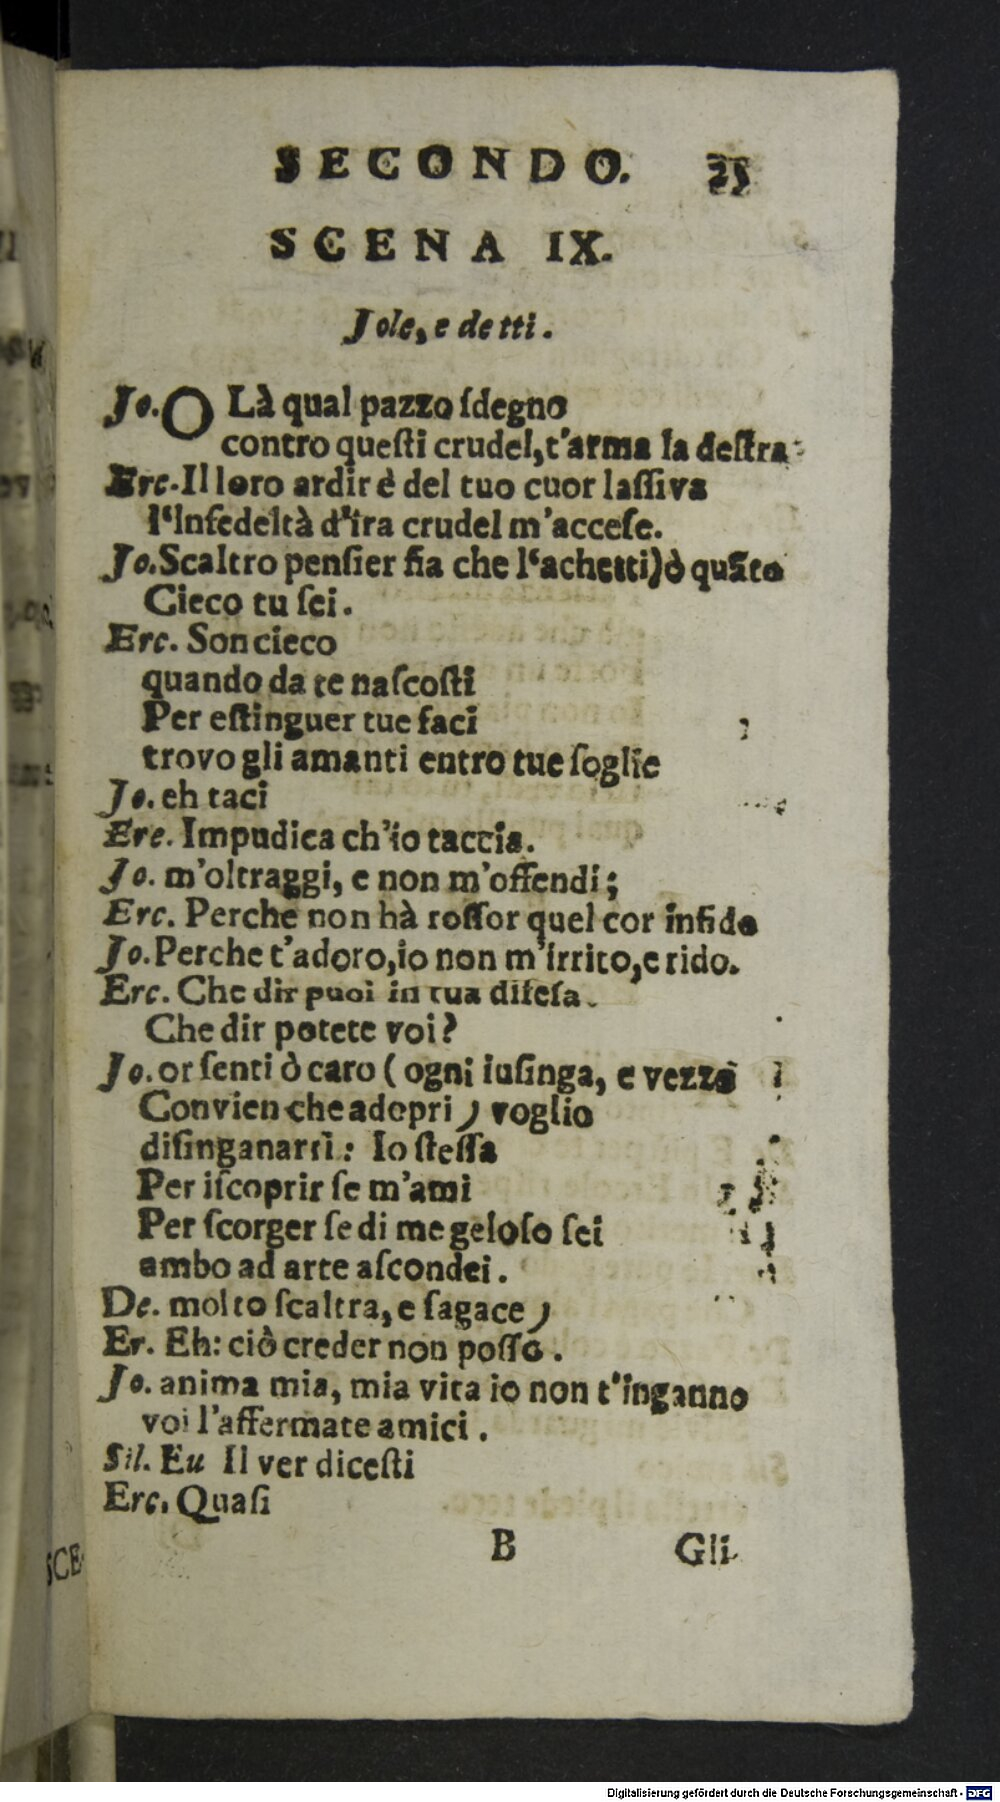 SECONDO. 25
SCENA IX.
Jole, e detti.
Jo. O Là qual pazzo ſdegno
contro queſti crudel, t'arma la deſtra
Erc. Il loro ardir è del tuo cuor laſſiva
l'Infedeltà d'ira crudel m'acceſe.
Jo. Scaltro penſier fia che l'achetti) ò quãto
Cieco tu ſei.
Erc. Son cieco
quando da te naſcoſti
Per eſtinguer tue faci
trovo gli amanti entro tue ſoglie
Jo. eh taci
Ere. Impudica ch'io taccia.
Jo. m'oltraggi, e non m'offendi;
Erc. Perche non hà roſſor quel cor infido
Jo. Perche t'adoro, io non m'irrito, e rido.
Erc. Che dir puoi in tua difeſa.
Che dir potete voi?
Jo. or ſenti ò caro ( ogni luſinga, e vezzo
Convien che adopri) voglio
diſinganarti: Io ſteſſa
Per iſcoprir ſe m'ami
Per ſcorger ſe di me geloſo ſei
ambo ad arte aſcondei.
De. molto ſcaltra, e ſagace)
Er. Eh: ciò creder non poſſo.
Jo. anima mia, mia vita io non t'inganno
voi l'affermate amici.
Sil. Eu Il ver diceſti
Erc. Quaſi
B Gli
SCE-
Digitalisierung gefördert durch die Deutsche Forschungsgemeinschaft - DFG